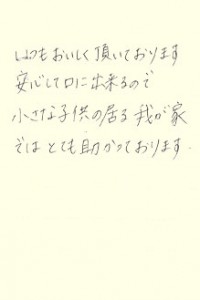 いつもおいしく頂いております
安心して口に出来るので
小さな子供の居る我が家
ではとても助かっております.